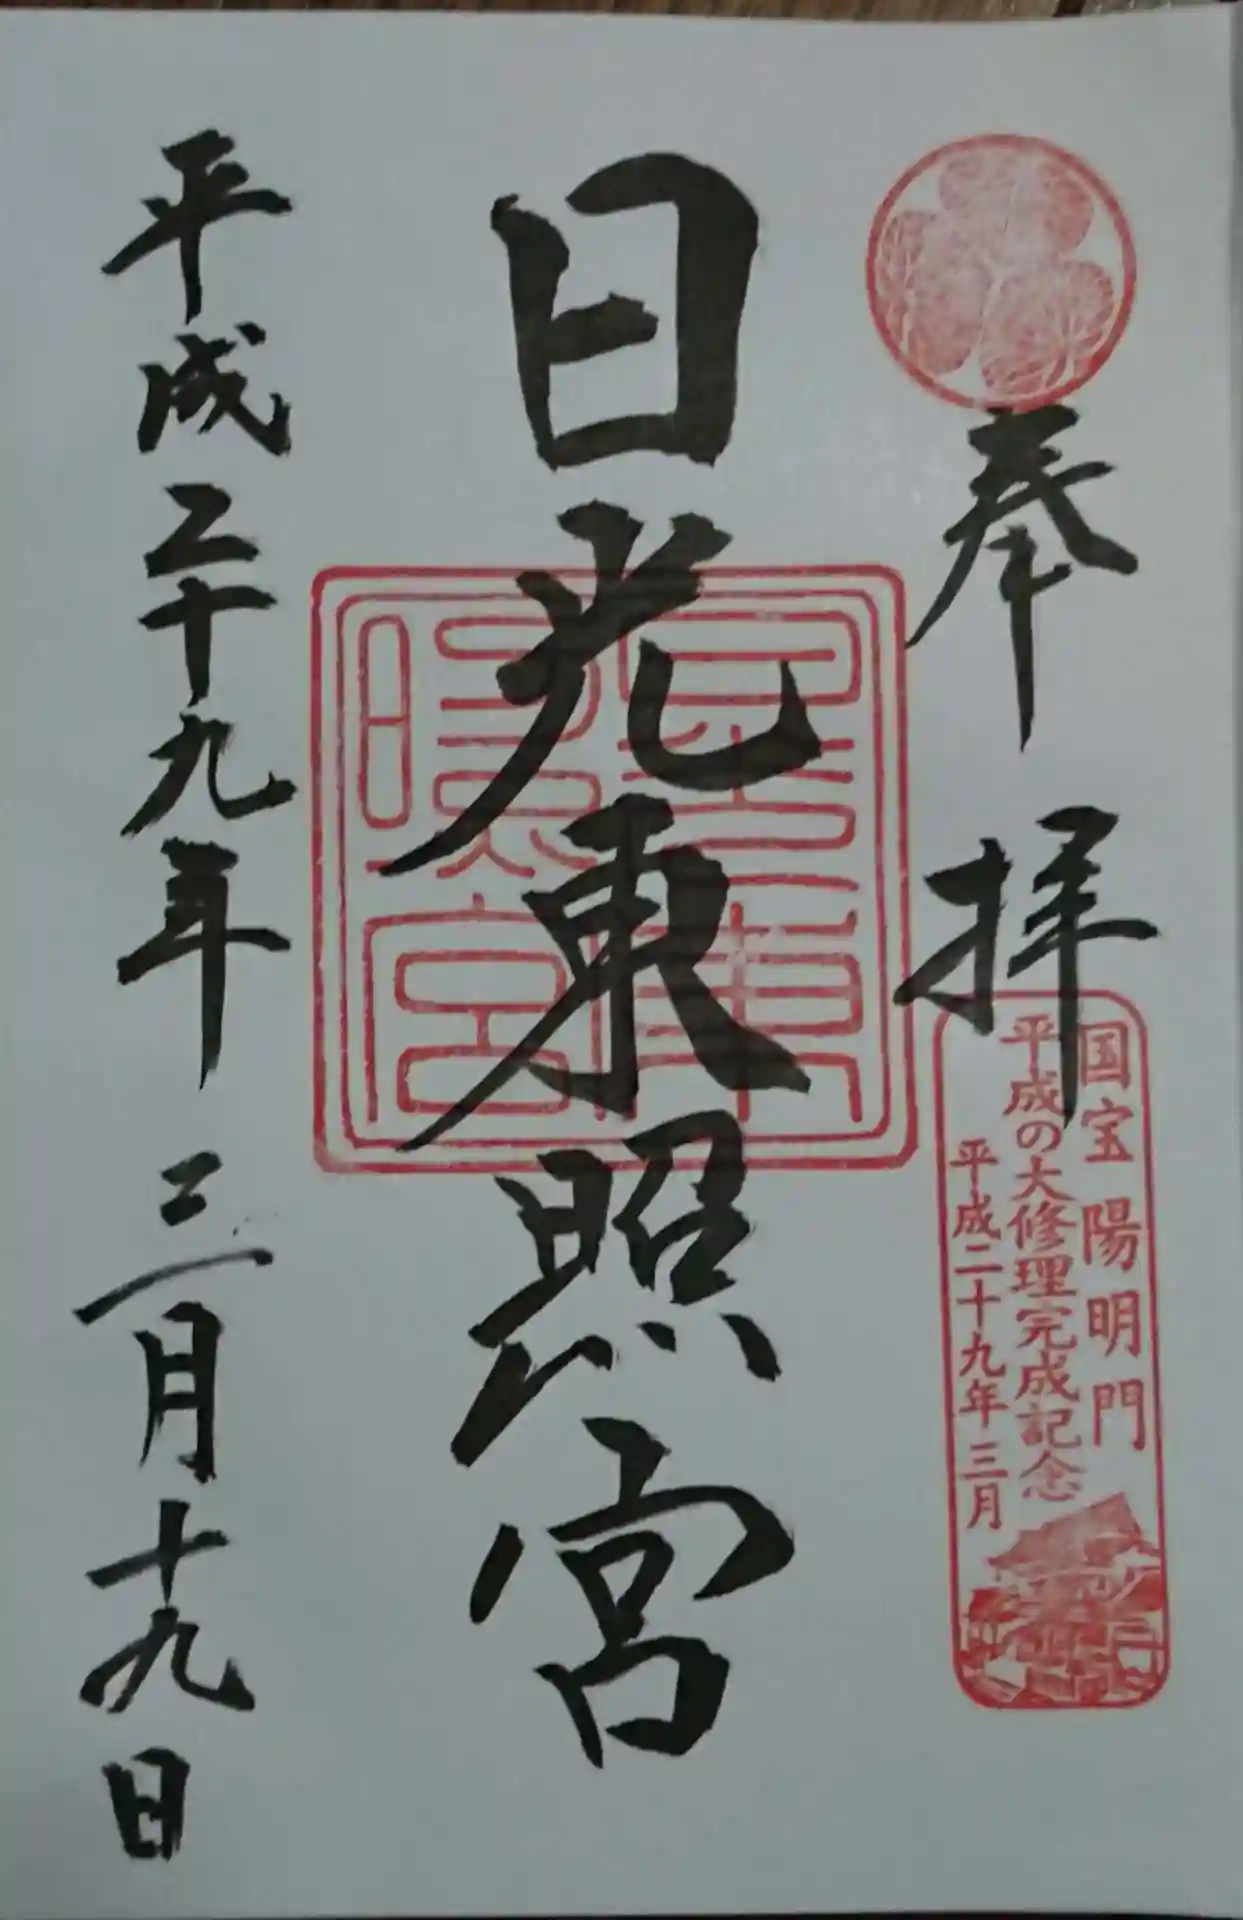 奉拝
国宝陽明門
平成の大修理完成記念
平成二十九年三月
日光東照宮
東照宮
平成二十九年三月十九日